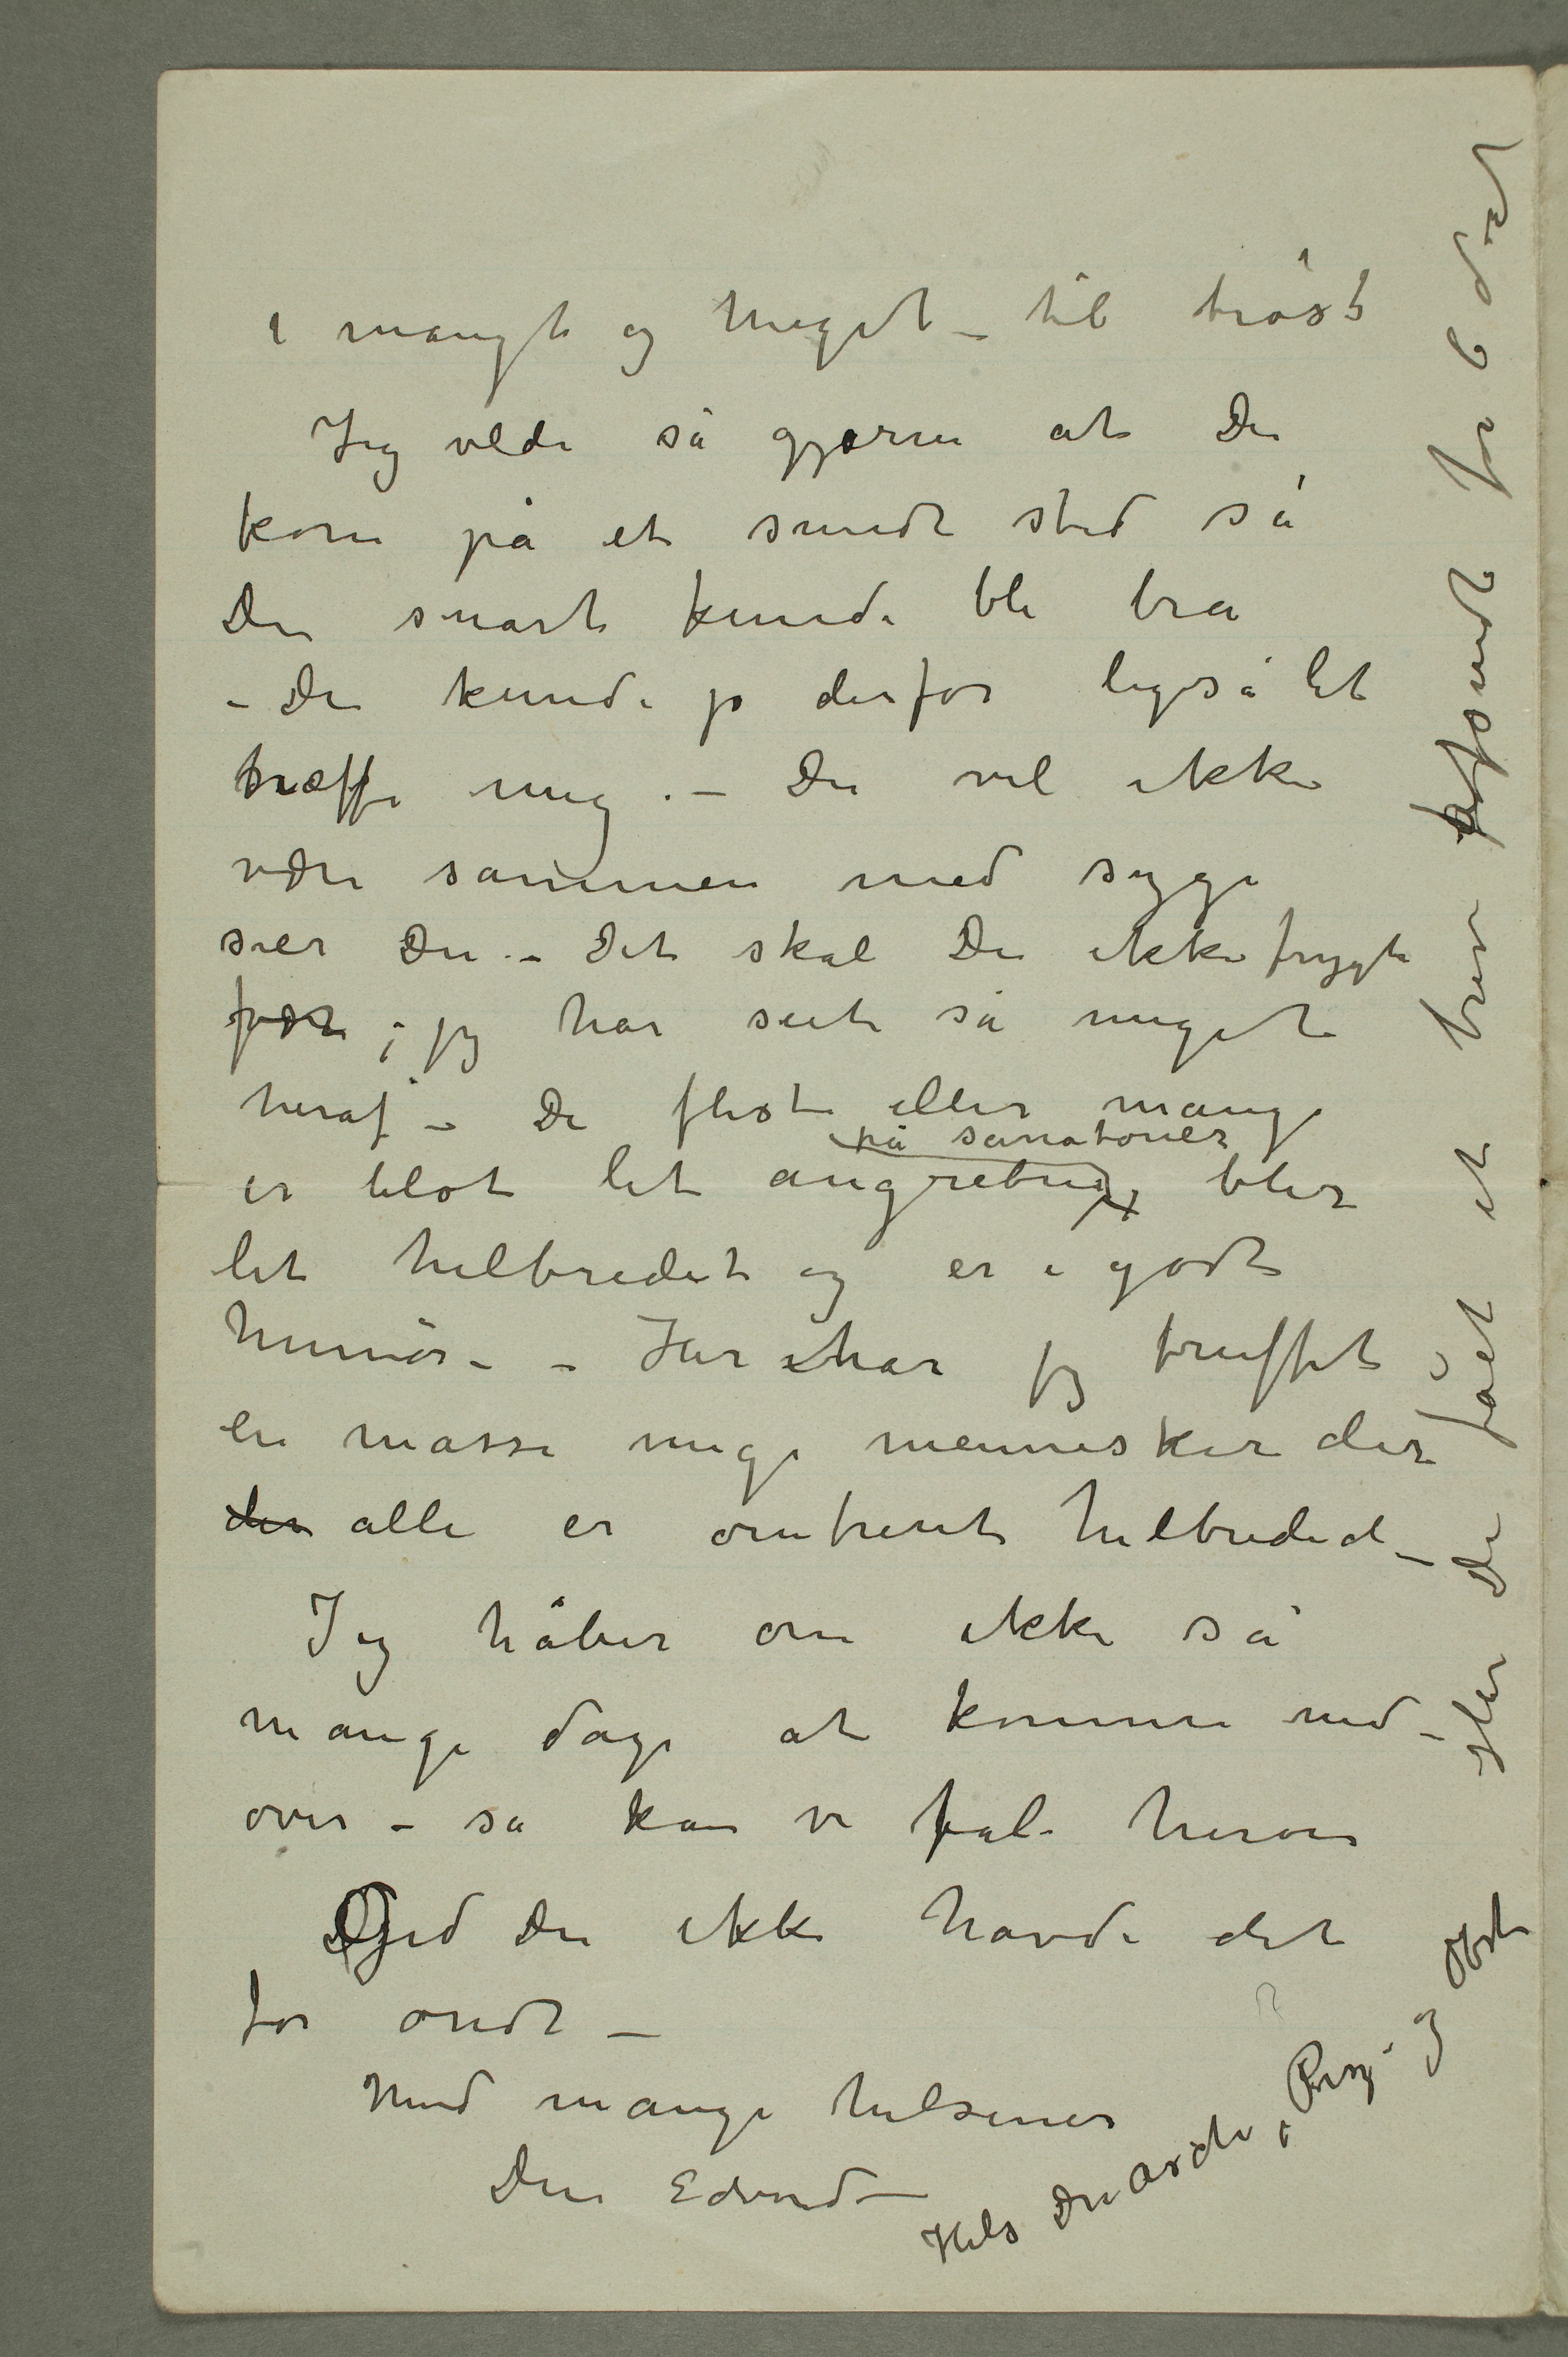 i mangt og meget – til trøst
Jeg vilde så gjerne at Du
kom på et sundt sted så
Du snart kunde bli bra
– Du kunde jo derfor ligså let
træffe mig. – Du vil ikke
være sammen med syge
sier Du. – Det skal Du ikke frygte
for; jeg har seet så meget
heraf – De fleste eller mange
på sanatorier
er blot let angrebne, blir
let helbredet og er i godt
humør. – Her har jeg truffet
en masse unge mennesker der
der alle er omtrent helbredet –
Jeg håber om ikke så
mange dage at komme ned-
over – så kan vi tale herom
Gid Du ikke havde det
for ondt –
Med mange hilsener
Din Edvard –
Hils Du Aase, og
eller De fået et brev afsendt fra